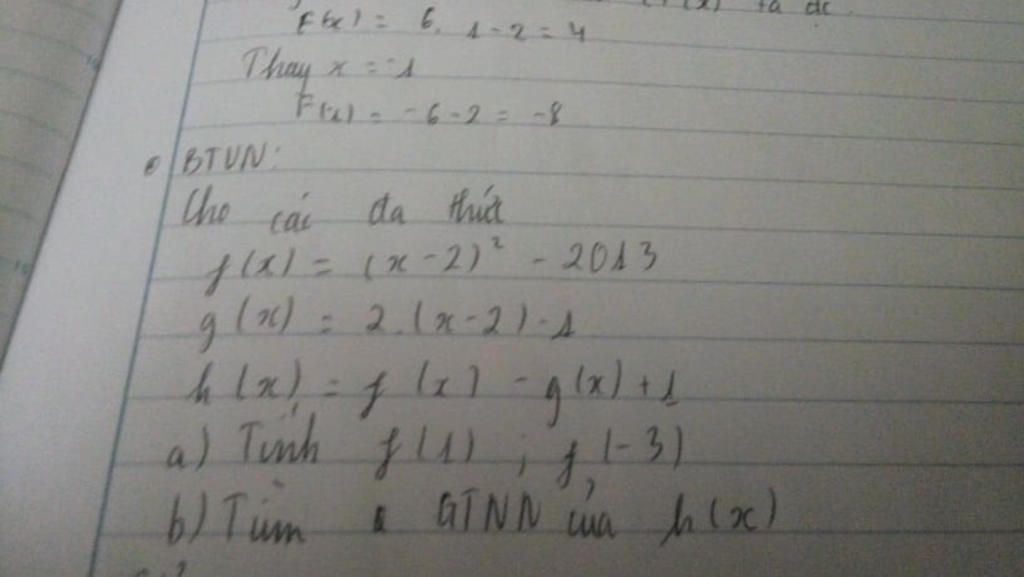 F(x) = 6. 1 - 2 = 4
Thay x = -1
F(x) = -6 - 2 = -8
BTVN:
Cho các đa thức
f(x) = (x - 2)² - 2013
g(x) = 2.(x-2) - 1
h(x) = f(x) - g(x) + 1
a) Tính f(1) ; f(-3)
b) Tìm GTNN của h(x)